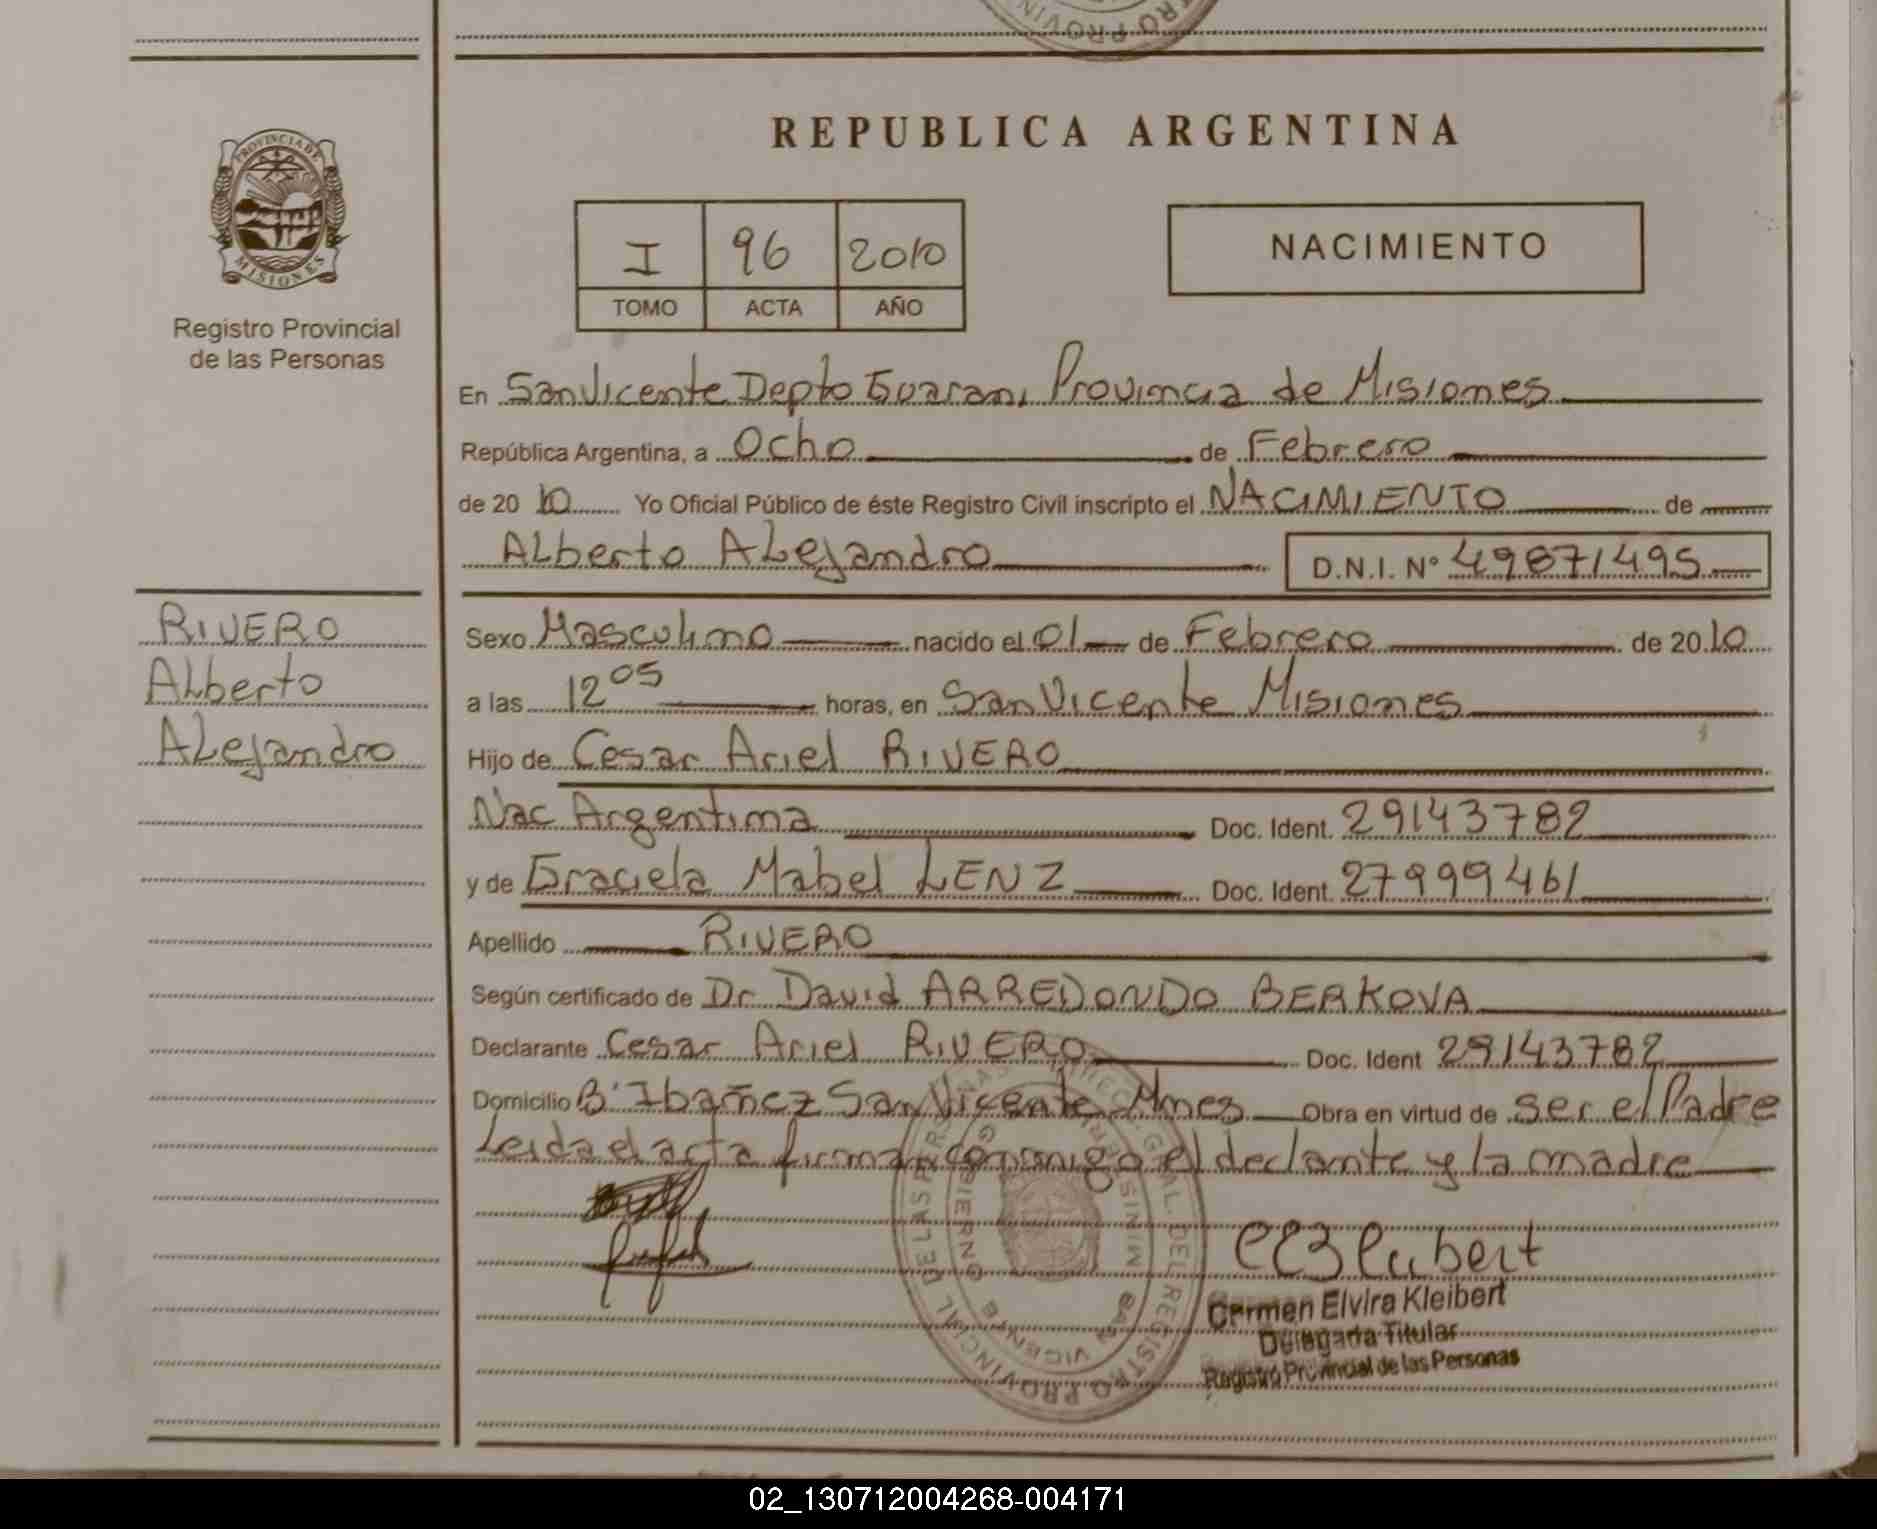 REPUBLICA ARGENTINA
PROVINCIA DE
MISIONES
Registro Provincial
de las Personas
I 96 2010
TOMO ACTA AÑO
NACIMIENTO
En San Vicente Depto Guarani Provincia de Misiones
República Argentina, a Ocho de Febrero
de 2010 Yo Oficial Público de éste Registro Civil inscripto el NACIMIENTO de
Alberto Alejandro D.N.I. Nº 49871495
RIVERO
Alberto
Alejandro
Sexo Masculino nacido el 01 de Febrero de 2010
a las 12 05 horas, en San Vicente Misiones
Hijo de Cesar Ariel RIVERO
Nac Argentina Doc. Ident. 29143782
y de Graciela Mabel LENZ Doc. Ident. 27999461
Apellido RIVERO
Según certificado de Dr David ARREDONDO BERKOVA
Declarante Cesar Ariel RIVERO Doc. Ident 29143782
Domicilio Bº Ibañez San Vicente Mnes Obra en virtud de ser el Padre
Leida el acta firman conmigo el declante y la madre
Carmen Elvira Kleibert
Delegada Titular
Registro Provincial de las Personas
02_130712004268-004171